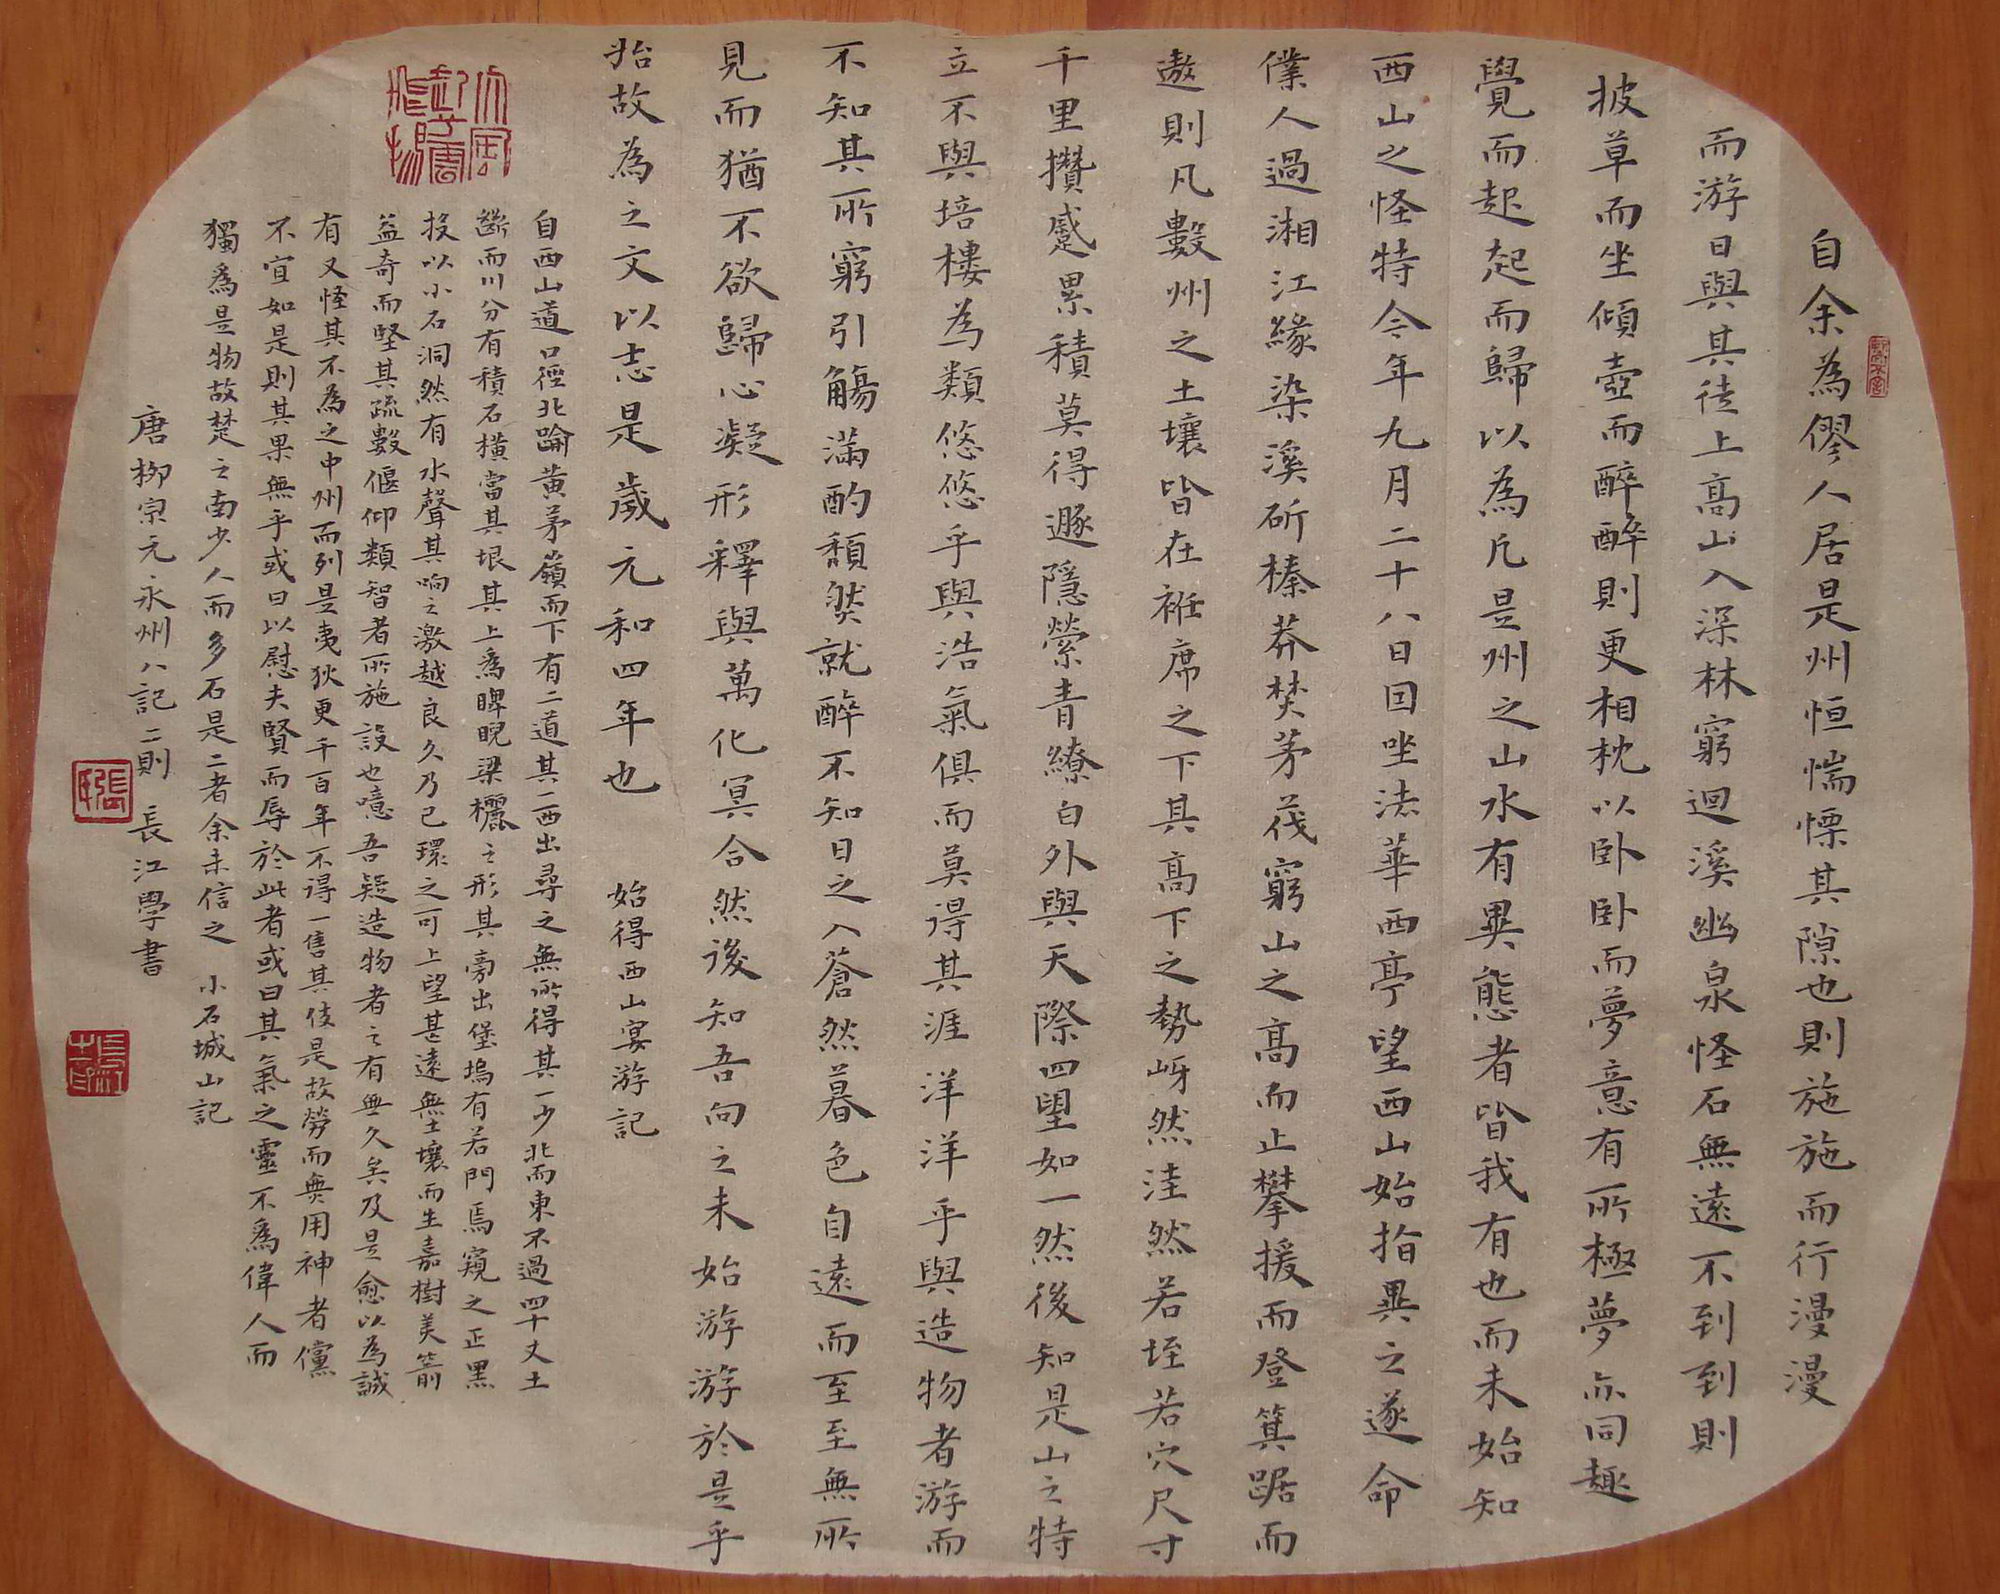 自余為僇人居是州恒惴慄其隙也則施施而行漫漫
而游日與其徒上高山入深林窮迴溪幽泉怪石無遠不到到則
披草而坐傾壺而醉醉則更相枕以卧卧而夢意有所極夢亦同趣
覺而起起而歸以為凡是州之山水有異態者皆我有也而未始知
西山之怪特今年九月二十八日因坐法華西亭望西山始指異之遂命
僕人過湘江緣染溪斫榛莽焚茅茷窮山之高而止攀援而登箕踞而
遨則凡數州之土壤皆在袵席之下其高下之勢岈然洼然若垤若穴尺寸
千里攢蹙累積莫得遯隱縈青繚白外與天際四望如一然後知是山之特
立不與培塿為類悠悠乎與浩氣俱而莫得其涯洋洋乎與造物者游而
不知其所窮引觴滿酌頹然就醉不知日之入蒼然暮色自遠而至至無所
見而猶不欲歸心凝形釋與萬化冥合然後知吾向之未始游游於是乎
始故為之文以志是歲元和四年也 始得西山宴游記
自西山道口徑北踰黃茅嶺而下有二道其一西出尋之無所得其一少北而東不過四十丈土
斷而川分有積石橫當其垠其上為睥睨梁欐之形其旁出堡塢有若門焉窺之正黑
投以小石洞然有水聲其响之激越良久乃已環之可上望甚遠無土壤而生嘉樹美箭
益奇而堅其疏數偃仰類智者所施設也噫吾疑造物者之有無久矣及是愈以為誠
有又怪其不為之中州而列是夷狄更千百年不得一售其伎是故勞而無用神者儻
不宜如是則其果無乎或曰以慰夫賢而辱於此者或曰其氣之靈不為偉人而
獨為是物故楚之南少人而多石是二者余未信之 小石城山記
唐柳宗元永州八記二則 長江學書